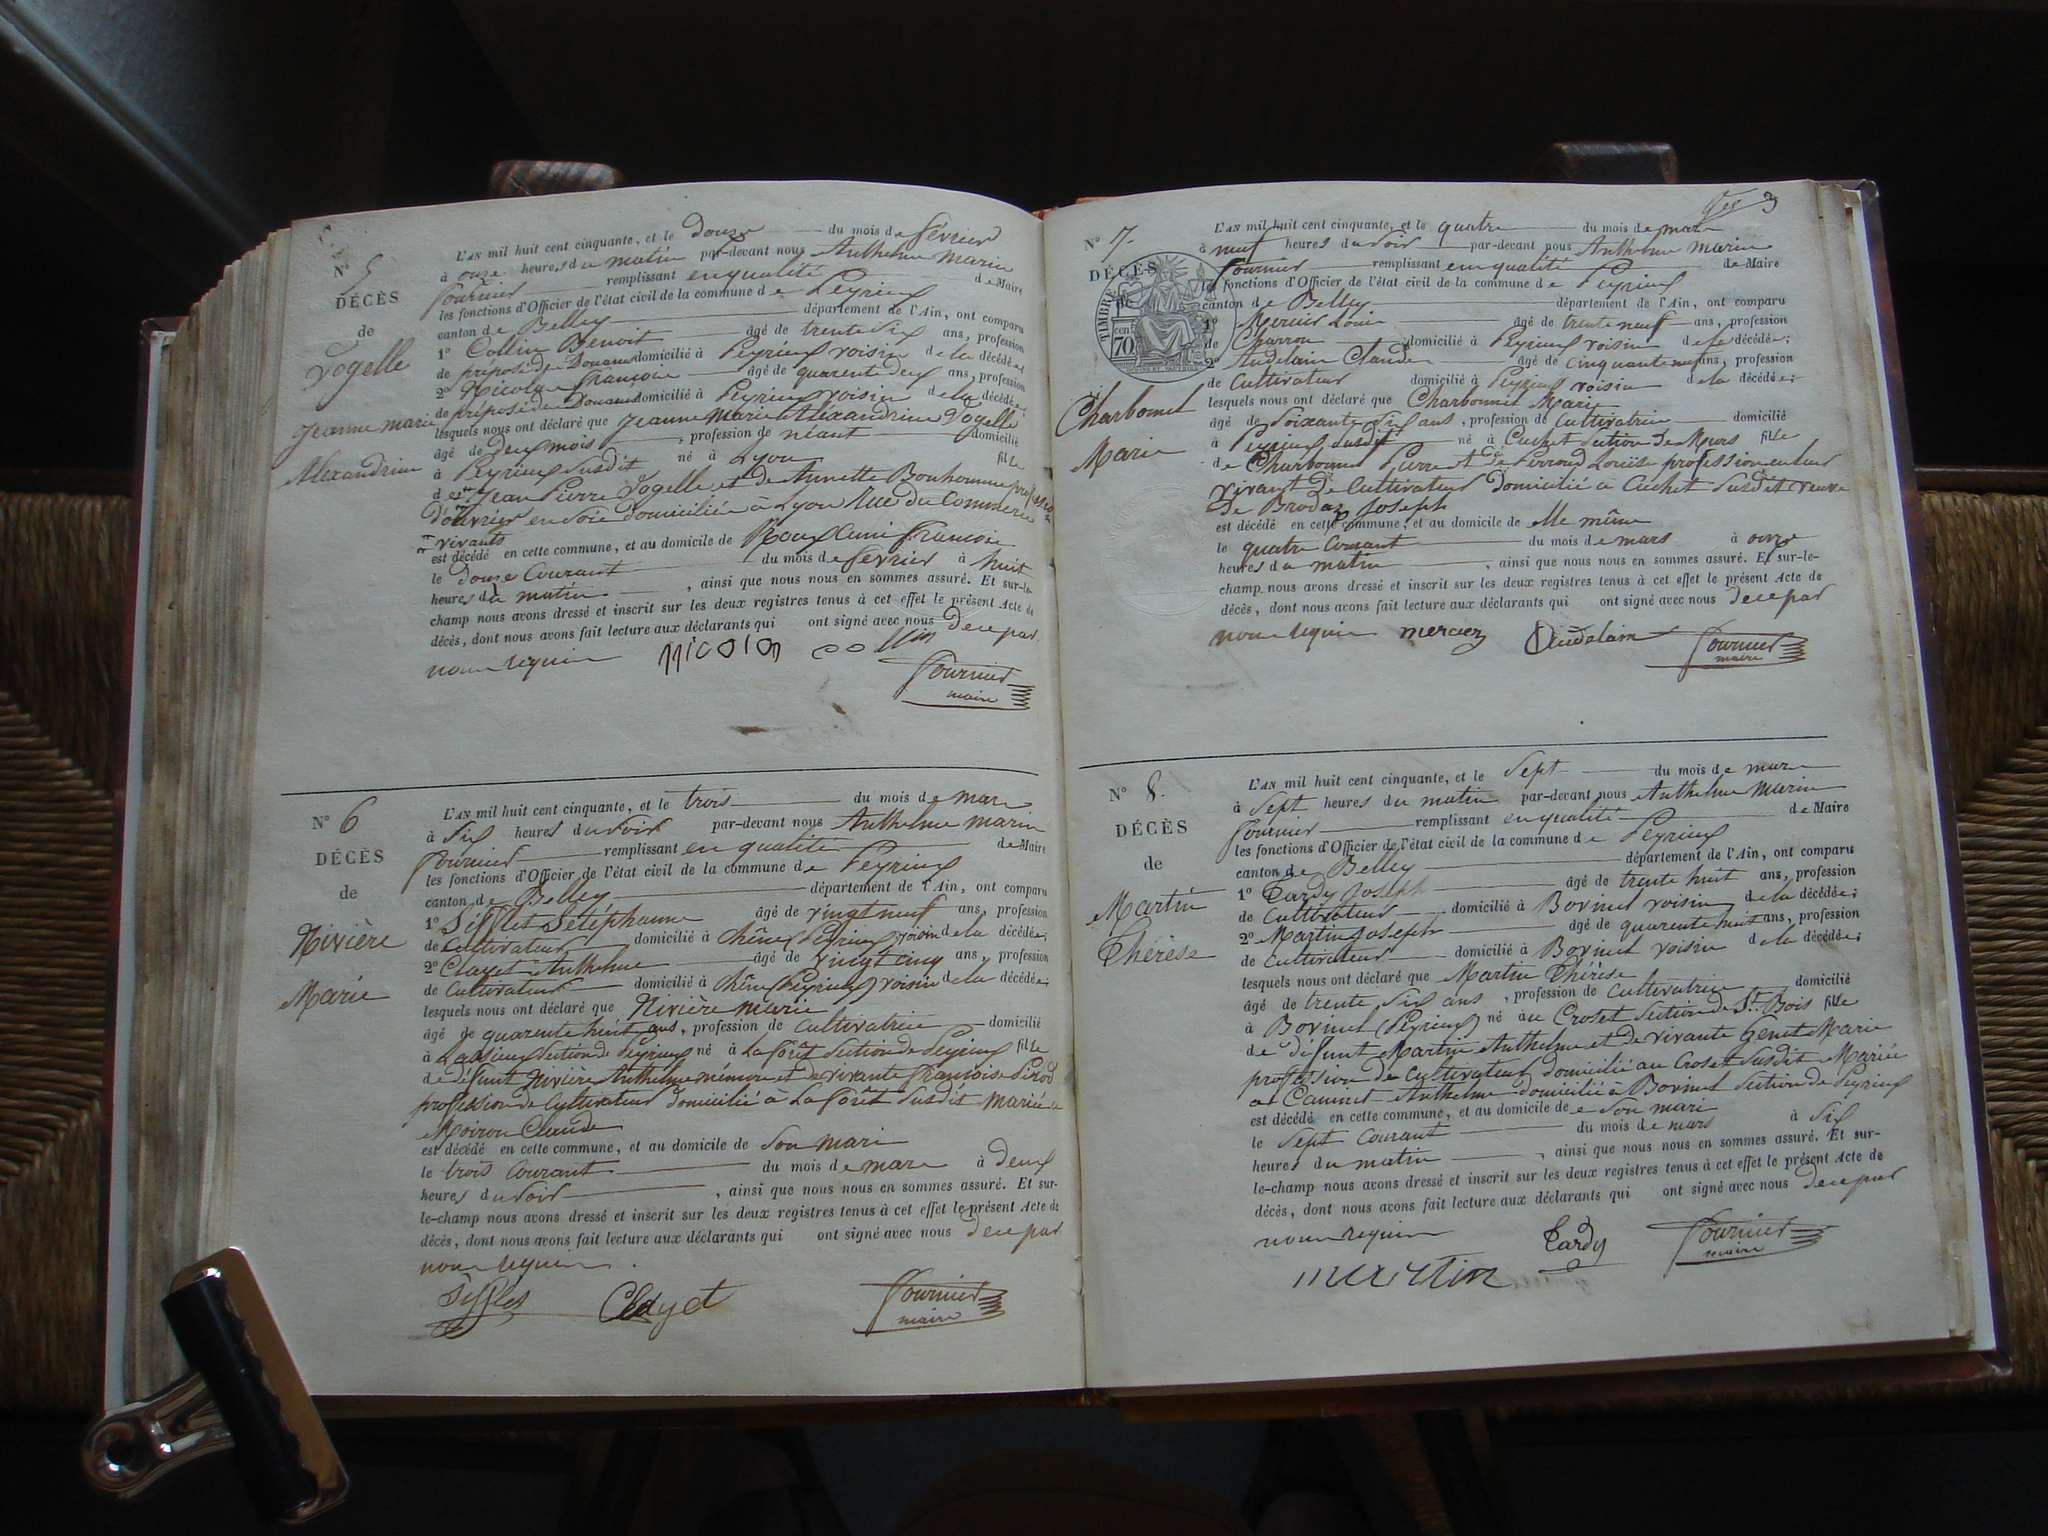 N° 5
DÉCÈS
de
Vogelle
Jeanne marie
Alexandrine
L'AN mil huit cent cinquante, et le douze du mois de février
à onze heures du matin par-devant nous Anthelme Marin
Fournier remplissant en qualité de Maire
les fonctions d'Officier de l'état civil de la commune de Peyrieux
canton de Belley département de l'Ain, ont comparu
1° Collin Benoit âgé de trente six ans, profession
de préposé de Douane domicilié à Peyrieux voisin de la décédée;
2° Nicolas françois âgé de quarente deux ans, profession
de préposé de Douane domicilié à Peyrieux voisin de la décédée;
lesquels nous ont déclaré que Jeanne Marie Alexandrine Vogelle
âgé de deux mois, profession de néant domicilié
à Peyrieux susdit né à Lyon fille
de Jean Pierre Vogelle et de Annette Bonhomme profession
d'ouvrier en soie domicilié à Lyon Rue du Commerce
vivants
est décédé en cette commune, et au domicile de françois
le douze Courant du mois de février à huit
heures du matin, ainsi que nous nous en sommes assuré. Et sur-le-
champ nous avons dressé et inscrit sur les deux registres tenus à cet effet le présent Acte de
décés, dont nous avons fait lecture aux déclarants qui ont signé avec nous dece par
nous requis Nicolas collin Fournier
maire
N° 6
DÉCÈS
de
Nivière
Marie
L'AN mil huit cent cinquante, et le trois du mois de mars
à six heures du soir par-devant nous Anthelme Marin
Fournier remplissant en qualité de Maire
les fonctions d'Officier de l'état civil de la commune de Peyrieux
canton de Belley département de l'Ain, ont comparu
1° Sifflet Stéphanne âgé de vingt neuf ans, profession
de Cultivateur domicilié à chêne (Peyrieux) voisin de la décédée;
2° Clayet Anthelme âgé de vingt cinq ans, profession
de Cultivateur domicilié à chêne (Peyrieux) voisin de la décédée;
lesquels nous ont déclaré que Nivière marie
âgé de quarente huit ans, profession de Cultivatrice domicilié
à section de Peyrieux né à La forêt section de Peyrieux fille
de défunt Nivière Anthelme et de vivante françoise
profession de Cultivateur domicilié à La forêt susdit mariée à
Moiron Claude
est décédé en cette commune, et au domicile de son mari
le trois Courant du mois de mars à deux
heures du soir, ainsi que nous nous en sommes assuré. Et sur-
le-champ nous avons dressé et inscrit sur les deux registres tenus à cet effet le présent Acte de
décés, dont nous avons fait lecture aux déclarants qui ont signé avec nous dece par
nous requis.
Sifflet Clayet Fournier
maire
3
N° 7.
DÉCÈS
de
TIMBRE
70 cent
Charbonnet
Marie
L'AN mil huit cent cinquante, et le quatre du mois de mars
à neuf heures du soir par-devant nous Anthelme Marin
Fournier remplissant en qualité de Maire
les fonctions d'Officier de l'état civil de la commune de Peyrieux
canton de Belley département de l'Ain, ont comparu
1° Mercier Louis âgé de trente neuf ans, profession
de Charron domicilié à Peyrieux voisin de la décédée;
2° Andelain Claude âgé de cinquante ans, profession
de Cultivateur domicilié à Peyrieux voisin de la décédée;
lesquels nous ont déclaré que Charbonnet Marie
âgé de soixante six ans, profession de Cultivatrice domicilié
à Peyrieux susdit né à Cuchet section de Murs fille
de Charbonnet Pierre et de Perroud Louise profession
vivant de Cultivateur domicilié à Cuchet susdit veuve
de Brodaz Joseph
est décédé en cette commune, et au domicile de elle même
le quatre Courant du mois de mars à onze
heures du matin, ainsi que nous nous en sommes assuré. Et sur-le-
champ nous avons dressé et inscrit sur les deux registres tenus à cet effet le présent Acte de
décés, dont nous avons fait lecture aux déclarants qui ont signé avec nous dece par
nous requis mercier Andelain Fournier
maire
N° 8.
DÉCÈS
de
Martin
Thérèse
L'AN mil huit cent cinquante, et le sept du mois de mars
à sept heures du matin par-devant nous Anthelme Marin
Fournier remplissant en qualité de Maire
les fonctions d'Officier de l'état civil de la commune de Peyrieux
canton de Belley département de l'Ain, ont comparu
1° Tardy Joseph âgé de trente huit ans, profession
de Cultivateur domicilié à Bovinel voisin de la décédée;
2° Martin Joseph âgé de quarente huit ans, profession
de Cultivateur domicilié à Bovinel voisin de la décédée;
lesquels nous ont déclaré que Martin Thérèse
âgé de trente six ans, profession de Cultivatrice domicilié
à Bovinel (Peyrieux) né au Croset section de St. Bois fille
de défunt Martin Anthelme et de vivante Genet Marie
profession de cultivateur domicilié au Croset susdit Mariée
à Anthelme domicilié à Bovinel section de Peyrieux
est décédé en cette commune, et au domicile de son mari
le sept Courant du mois de mars à six
heures du matin, ainsi que nous nous en sommes assuré. Et sur-
le-champ nous avons dressé et inscrit sur les deux registres tenus à cet effet le présent Acte de
décés, dont nous avons fait lecture aux déclarants qui ont signé avec nous dece par
nous requis Tardy Fournier
maire
martin